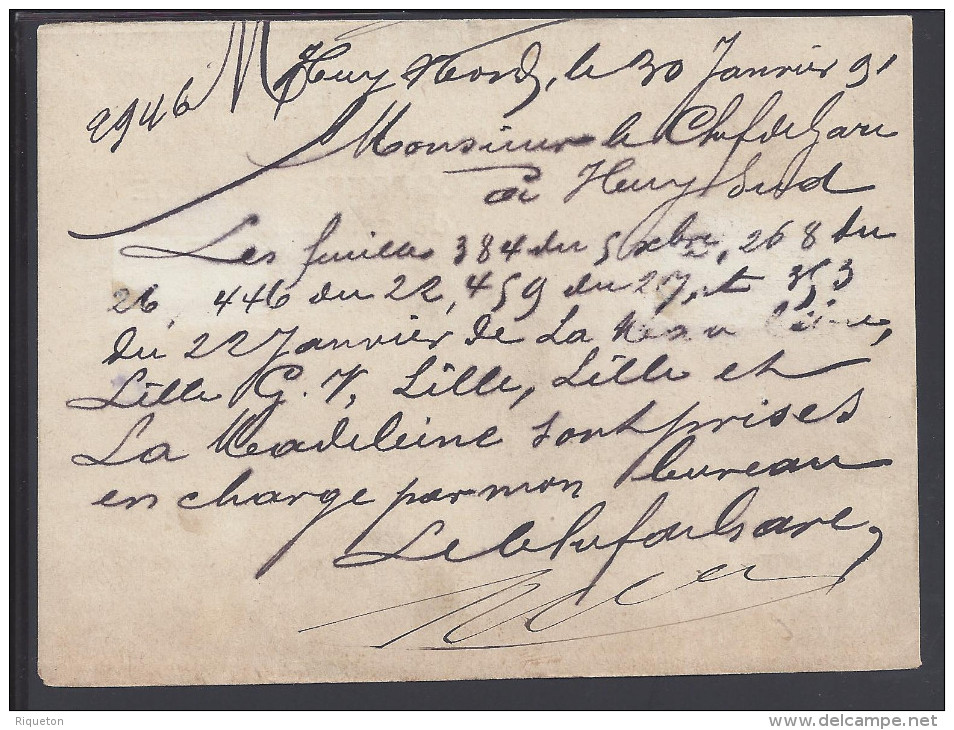 Huy Nord, le 30 Janvier 91
2946
Monsieur le Chef de Gare
à Huy Sud
Les feuilles 384 du 5 xbre, 268 du
26, 446 du 22, 459 du 27, et 353
du 22 Janvier de La Madeleine,
Lille G. V, Lille, Lille et
La Madeleine sont prises
en charge par mon bureau
Le Chef de Gare,
Riqueton
www.delcampe.net